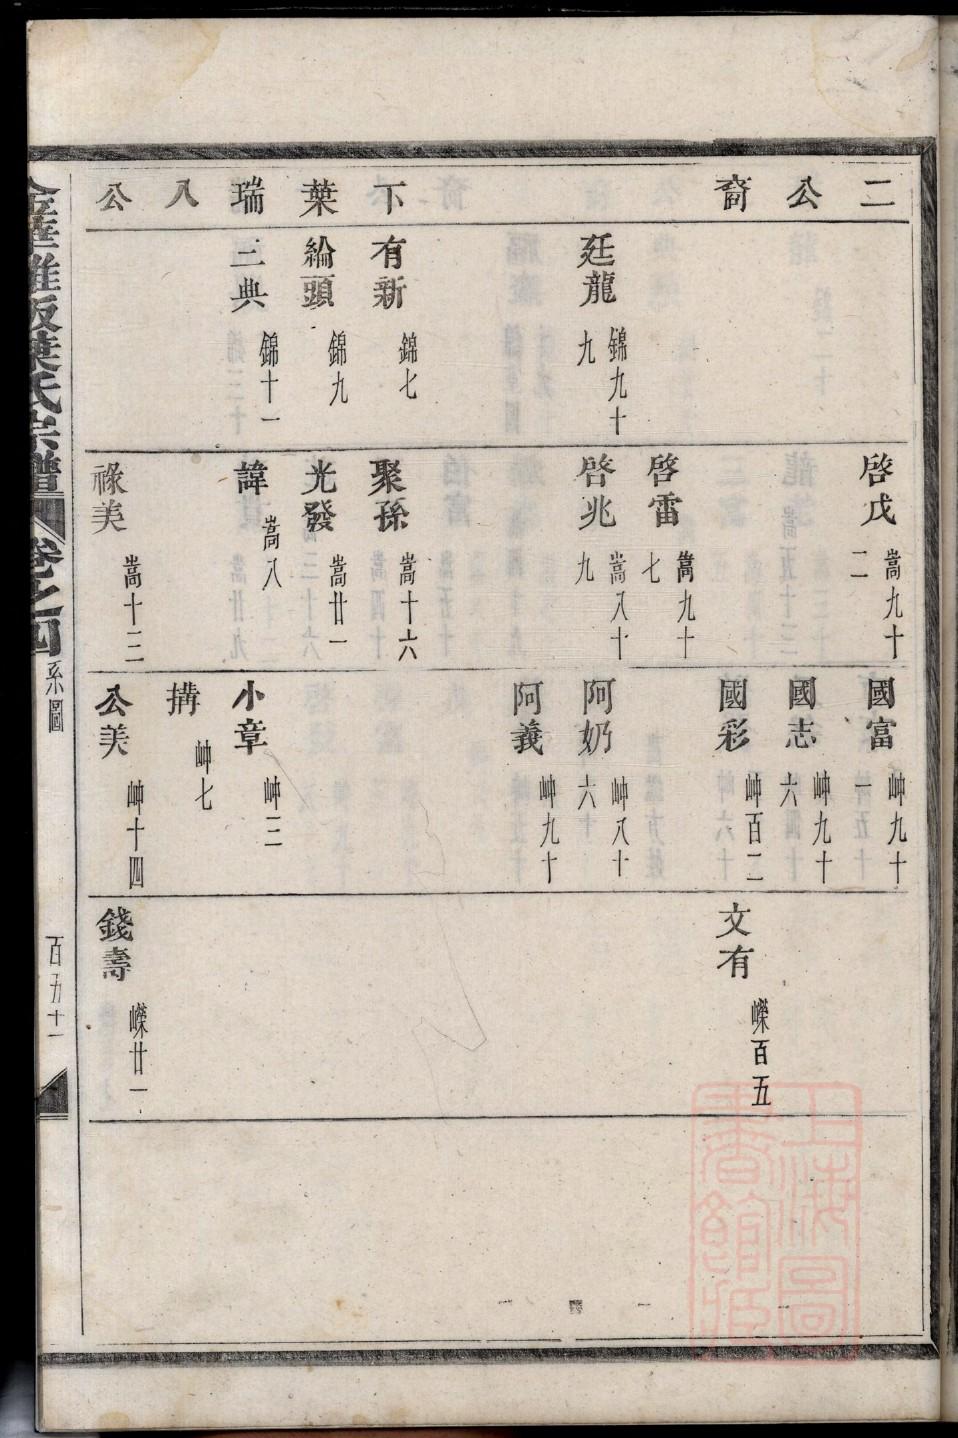 二公裔
下葉瑞八公
廷龍 錦九十九
有新 錦七
綸頭 錦九
三典 錦十一
啓戊 嵩九十二
啓雷 嵩九十七
啓兆 嵩八十九
聚孫 嵩十六
光發 嵩廿一
諱 嵩八
祿美 嵩十三
國富 岫九十一
國志 岫九十六
國彩 岫百二
阿奶 岫八十六
阿義 岫九十
小章 岫三
搆 岫七
公美 岫十四
文有 嶸百五
錢壽 嶸廿一
葉氏宗譜 卷之四 系圖 百五十一
上海圖書館藏